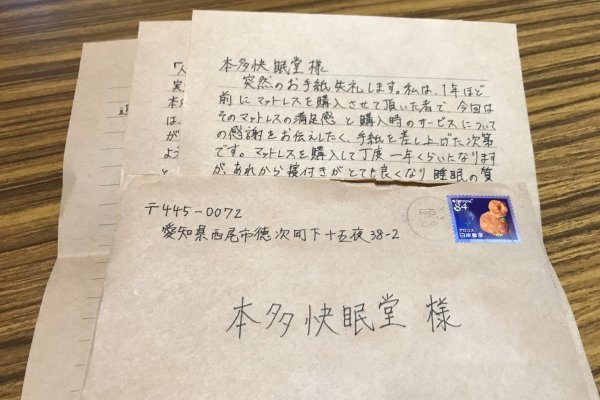 本多快眠堂様
突然のお手紙失礼します。私は、1年ほど
前にマットレスを購入させて頂いた者で、今回は
そのマットレスの満足感と購入時のサービスについて
の感謝をお伝えしたく、手紙を差し上げた次第
です。マットレスを購入して丁度一年くらいたなります
が、あれから寝付きがとても良くなり睡眠の質
〒445-0072
愛知県西尾市徳次町下十五夜38-2
84
日本郵便
本多快眠堂様